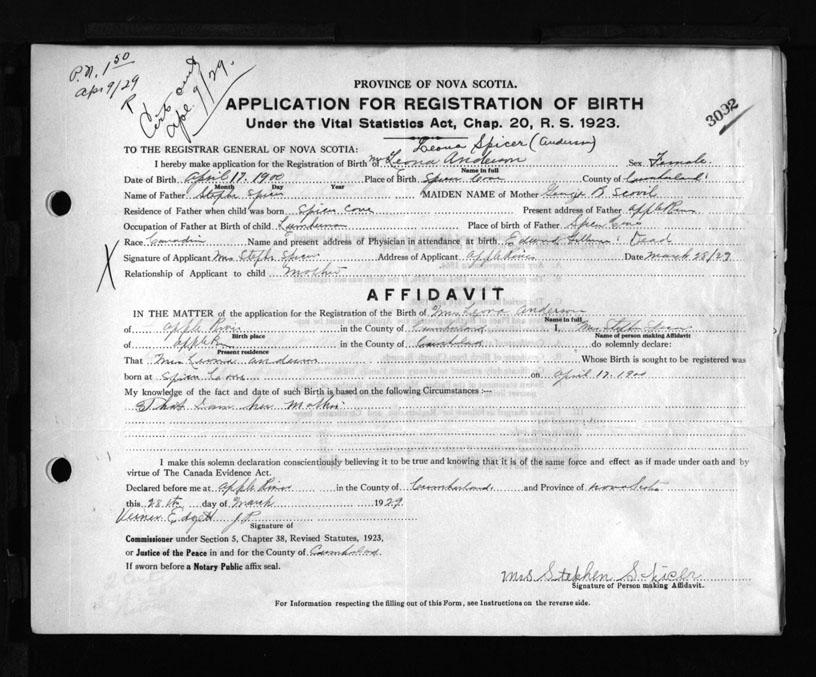 P.N. 1 50
Apr 9/29
Cert out
Apr. 9/29.
3092
PROVINCE OF NOVA SCOTIA.
APPLICATION FOR REGISTRATION OF BIRTH
Under the Vital Statistics Act, Chap. 20, R. S. 1923.
Leona Spicer (Anderson)
TO THE REGISTRAR GENERAL OF NOVA SCOTIA:
I hereby make application for the Registration of Birth of Mrs Leona Anderson Sex Female
Name in full
Date of Birth April 17. 1900 Place of Birth Spicer Cove County of Cumberland
Month Day Year
Name of Father Stephen Spicer MAIDEN NAME of Mother B Scovil
Residence of Father when child was born Spicer Cove Present address of Father Apple River
Occupation of Father at Birth of child Lumberman Place of birth of Father Spicer Cove
Race Canadian Name and present address of Physician in attendance at birth Edward Dead
Signature of Applicant Mrs Stephen Spicer Address of Applicant Apple River Date March 28/29
Relationship of Applicant to child Mother
X
AFFIDAVIT
IN THE MATTER of the application for the Registration of the Birth of Mrs Leona Anderson
Name in full
of Apple River in the County of Cumberland I, Mrs Stephen Spicer
Birth place Name of person making Affidavit
of Apple R in the County of Cumberland do solemnly declare:
Present residence
That Mrs Leona Anderson Whose Birth is sought to be registered was
born at Spicer Cove on April 17. 1900
My knowledge of the fact and date of such Birth is based on the following Circumstances :—
That I am her Mother
I make this solemn declaration conscientiously believing it to be true and knowing that it is of the same force and effect as if made under oath and by
virtue of The Canada Evidence Act.
Declared before me at Apple River in the County of Cumberland and Province of Nova Scotia
this 28th day of March 1929
Verner Edgett J.P.
Signature of
Commissioner under Section 5, Chapter 38, Revised Statutes, 1923,
or Justice of the Peace in and for the County of Cumberland
If sworn before a Notary Public affix seal.
Mrs Stephen Spicer
Signature of Person making Affidavit.
For Information respecting the filling out of this Form, see Instructions on the reverse side.